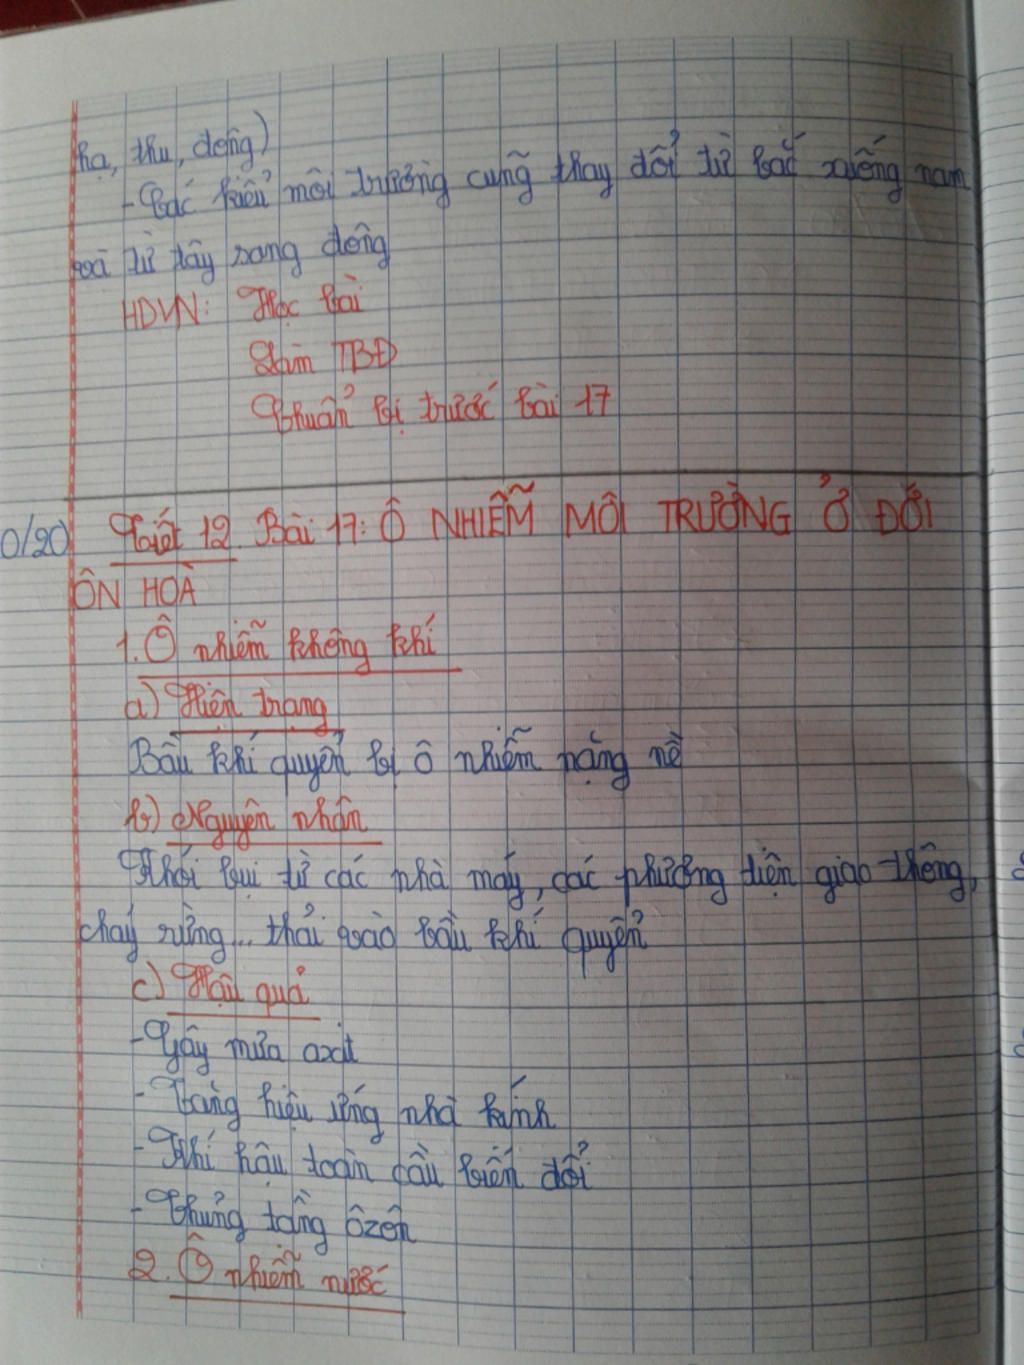 hạ, thu, đông)
- Các kiểu môi trường cũng thay đổi từ bắc xuống nam
và từ tây sang đông
HDVN: Học bài
Làm TBĐ
Chuẩn bị trước bài 17
0/20 Tiết 12. Bài 17: Ô NHIỄM MÔI TRƯỜNG Ở ĐỚI
ÔN HOÀ
1. Ô nhiễm không khí
a) Hiện trạng
Bầu khí quyển bị ô nhiễm nặng nề
b) Nguyên nhân
Khói bụi từ các nhà máy, các phương tiện giao thông,
cháy rừng... thải vào bầu khí quyển
c) Hậu quả
- Gây mưa axit
- Tăng hiệu ứng nhà kính
- Khí hậu toàn cầu biến đổi
- Thủng tầng ôzôn
2. Ô nhiễm nước